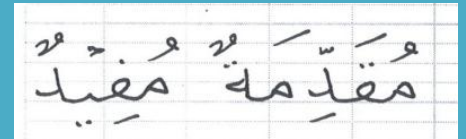 مُقَدِّمَةٌ مُفِيْدٌ